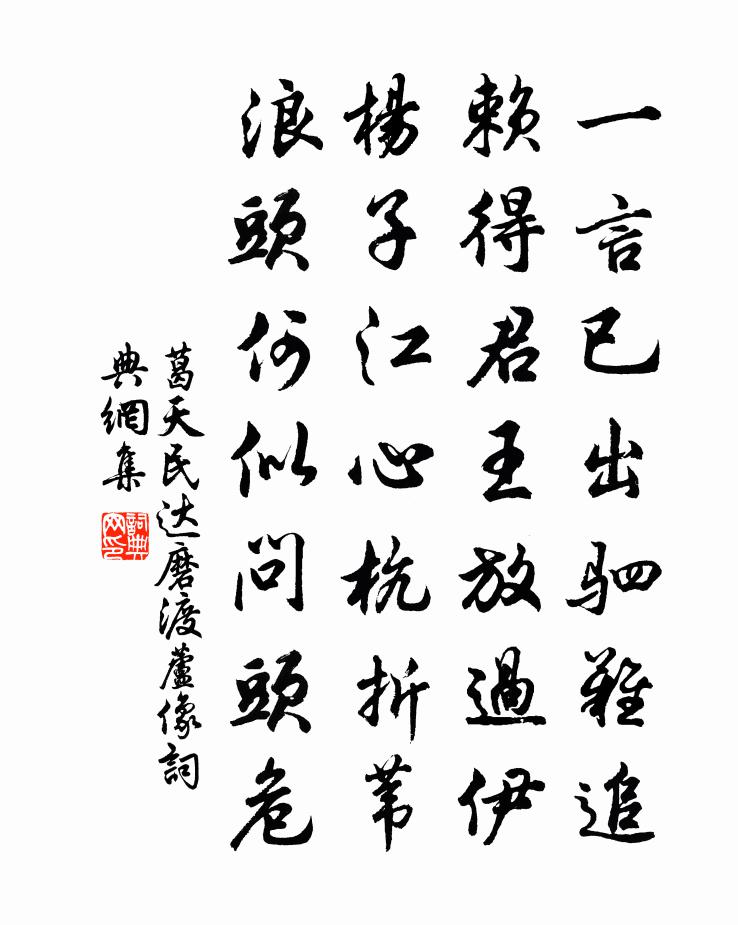 一言已出驷難追
賴得君王放過伊
楊子江心杭折苇
浪頭何似問頭危
葛天民达磨渡蘆像詞
典網集
詞典
网印